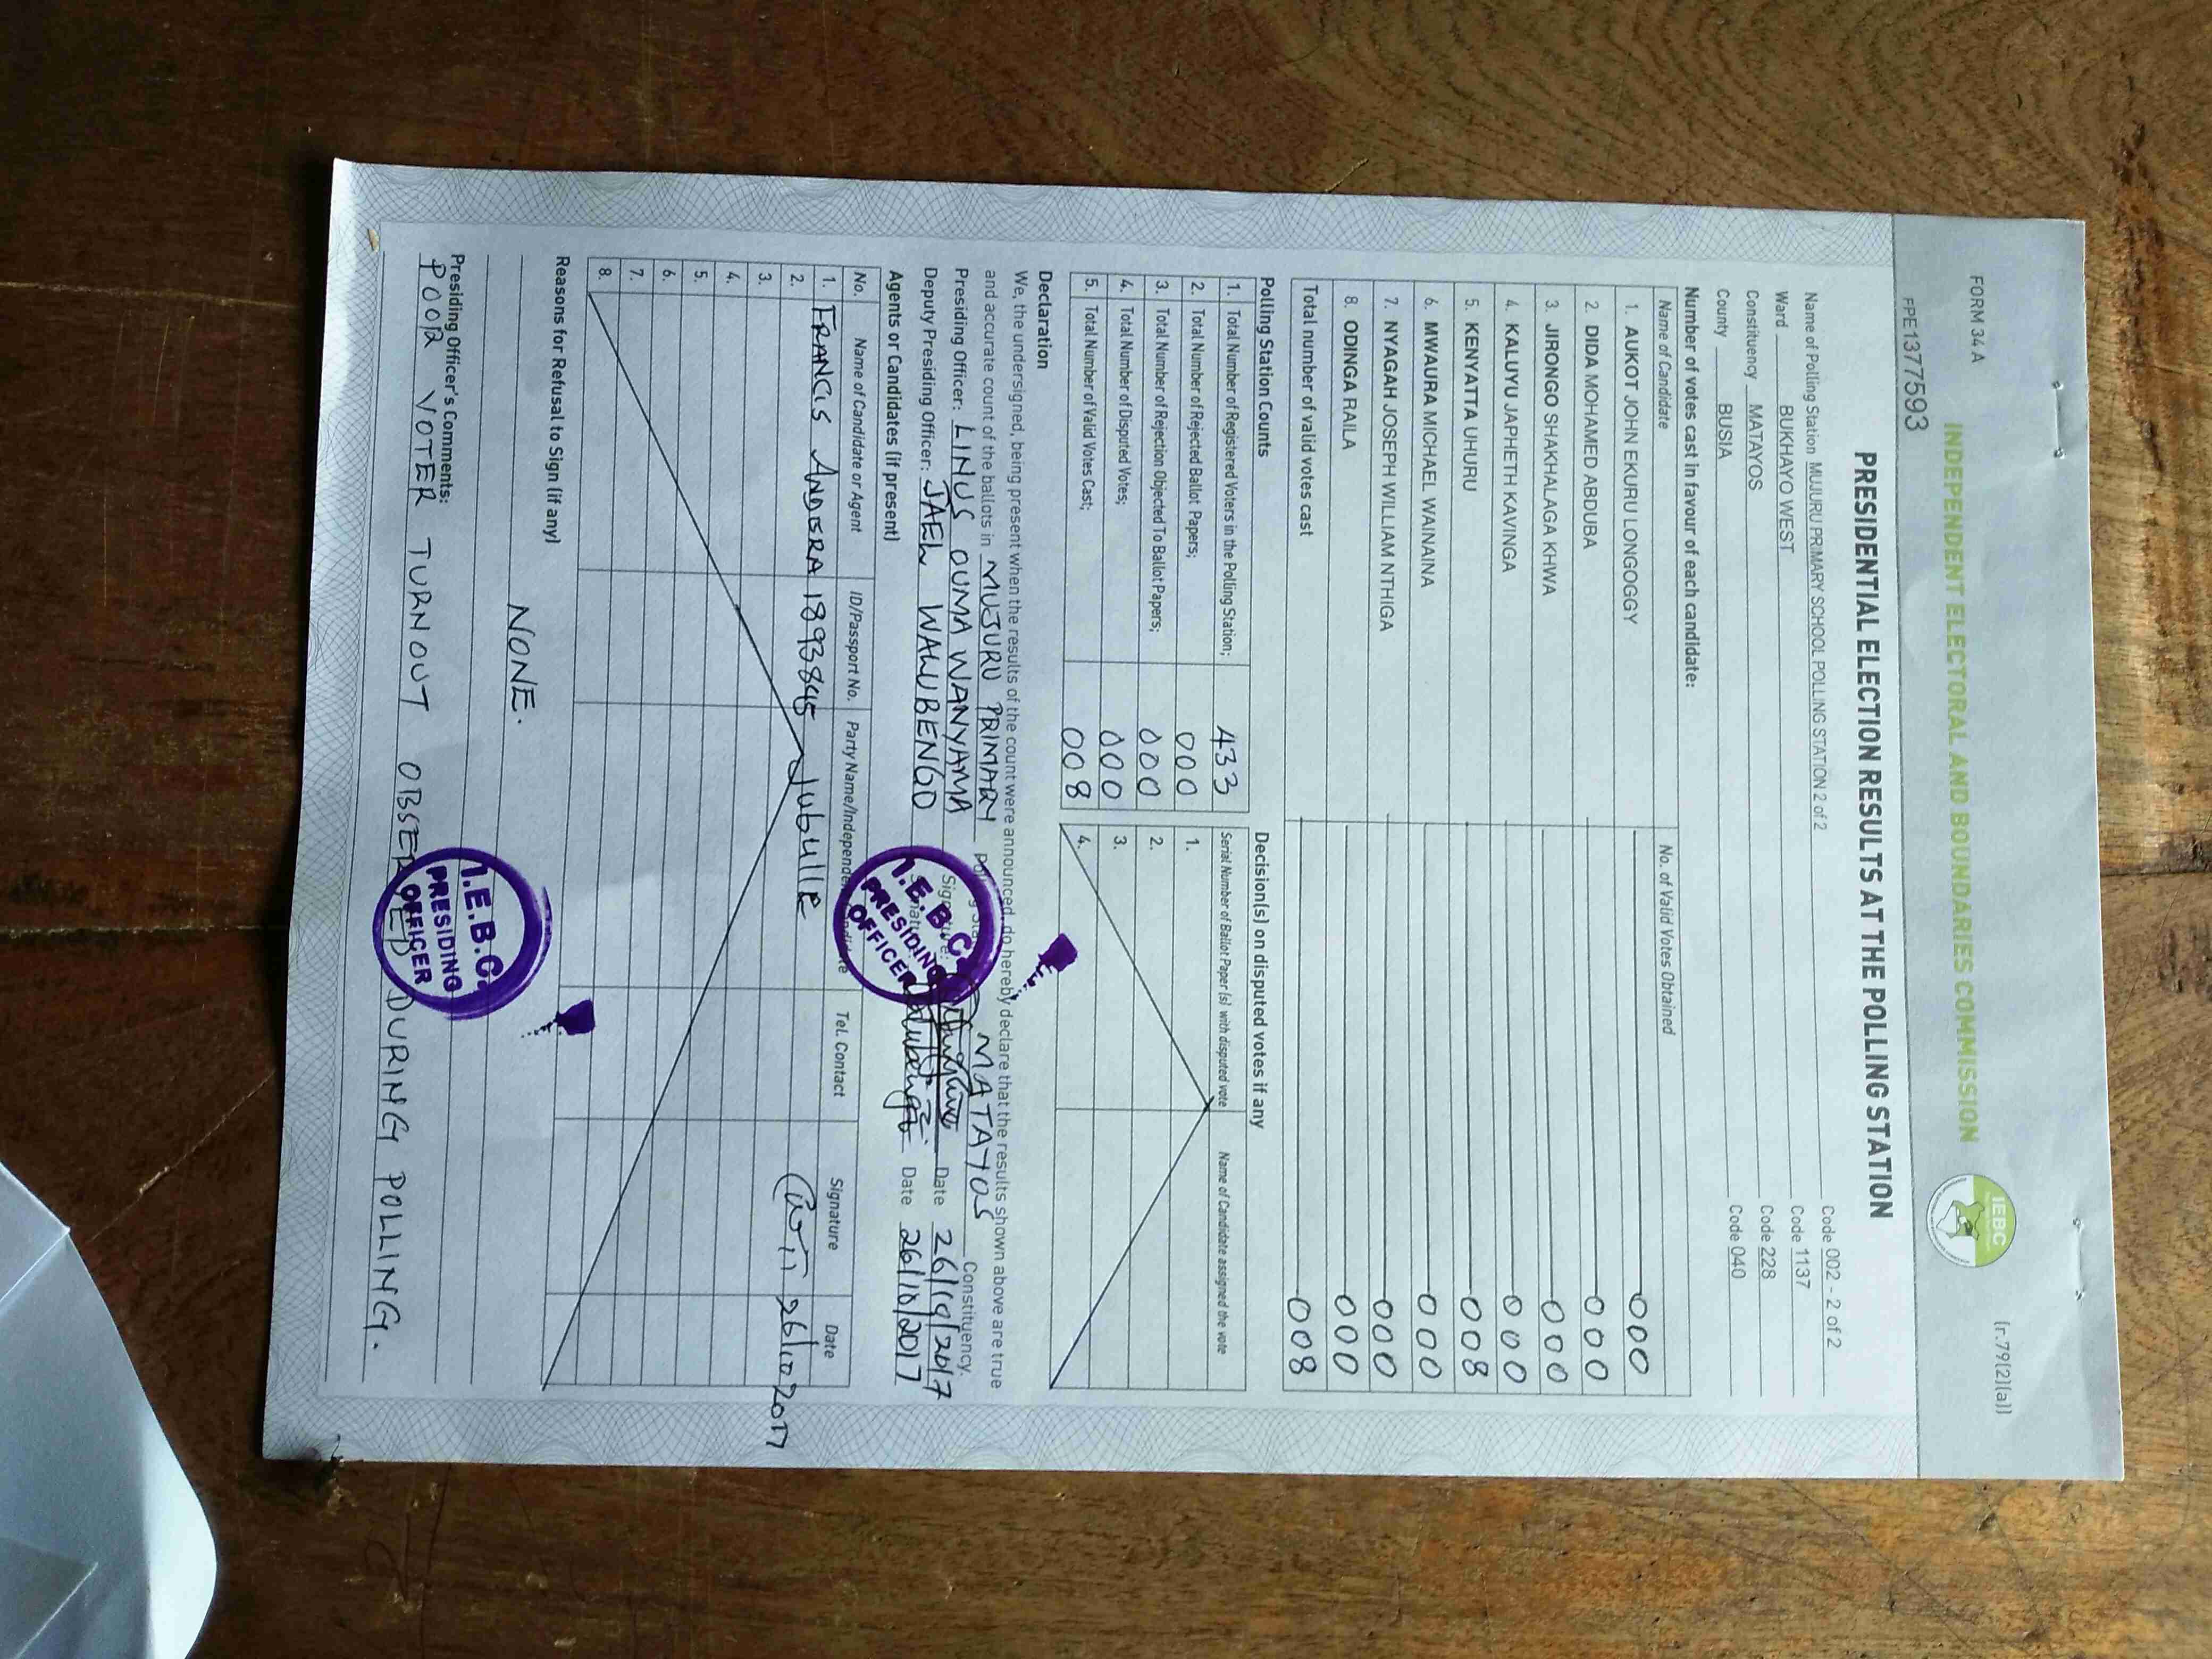 FORM 34A
(r.79(2)(a))
INDEPENDENT ELECTORAL AND BOUNDARIES COMMISSION
IEBC
FPE1377593
PRESIDENTIAL ELECTION RESULTS AT THE POLLING STATION
Name of Polling Station MUJURU PRIMARY SCHOOL POLLING STATION 2 of 2 Code 002 - 2 of 2
Ward BUKHAYO WEST Code 1137
Constituency MATAYOS Code 228
County BUSIA Code 040
Number of votes cast in favour of each candidate:
Name of Candidate No. of Valid Votes Obtained
1. AUKOT JOHN EKURU LONGOGGY 000
2. DIDA MOHAMED ABDUBA 000
3. JIRONGO SHAKHALAGA KHWA 000
4. KALUYU JAPHETH KAVINGA 000
5. KENYATTA UHURU 008
6. MWAURA MICHAEL WAINAINA 000
7. NYAGAH JOSEPH WILLIAM NTHIGA 000
8. ODINGA RAILA 000
Total number of valid votes cast 008
Polling Station Counts
1. Total Number of Registered Voters in the Polling Station; 433
2. Total Number of Rejected Ballot Papers; 000
3. Total Number of Rejection Objected To Ballot Papers; 000
4. Total Number of Disputed Votes; 000
5. Total Number of Valid Votes Cast; 008
Decision(s) on disputed votes if any
Serial Number of Ballot Paper (s) with disputed vote Name of Candidate assigned the vote
1.
2.
3.
4.
Declaration
We, the undersigned, being present when the results of the count were announced, do hereby declare that the results shown above are true
and accurate count of the ballots in MUJURU PRIMARY MATAYOS Constituency.
Presiding Officer: LINUS OUMA WANYAMA Date 26/10/2017
Deputy Presiding Officer: JAEL WALUBENGO Date 26/10/2017
I.E.B.C.
PRESIDING
OFFICER
Agents or Candidates (if present)
No. Name of Candidate or Agent ID/Passport No. Party Name/Independent Candidate Tel. Contact Signature Date
1. FRANCIS ANDERA 18938845 Jubulle 26/10 2017
2.
3.
4.
5.
6.
7.
8.
Reasons for Refusal to Sign (if any)
NONE.
Presiding Officer's Comments:
POOR VOTER TURNOUT OBSERVED DURING POLLING.
I.E.B.C.
PRESIDING
OFFICER